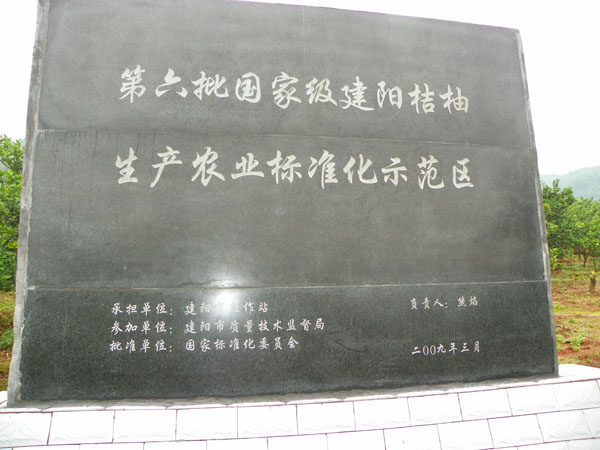 第六批国家级建阳桔柚
生产农业标准化示范区
承担单位：建阳市经作站
负责人：熊焰
参加单位：建阳市质量技术监督局
批准单位：国家标准化委员会
二00九年三月